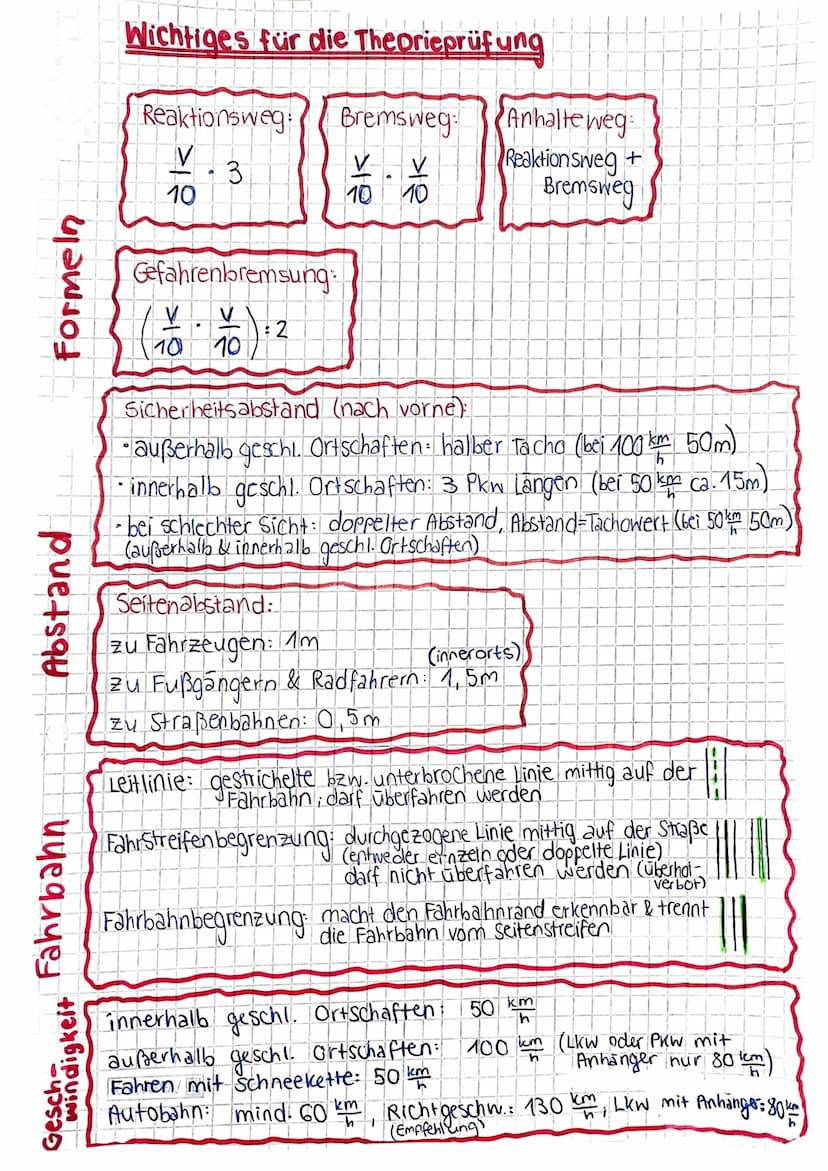 Wichtiges für die Theorieprüfung
Formeln
Reaktionsweg:
V/10 · 3
Bremsweg:
V/10 · V/10
Anhalteweg:
Reaktionsweg +
Bremsweg
Gefahrenbremsung:
(V/10 · V/10) : 2
Abstand
Sicherheitsabstand (nach vorne):
· außerhalb geschl. Ortschaften: halber Tacho (bei 100 km/h 50m)
· innerhalb geschl. Ortschaften: 3 Pkw Längen (bei 50 km/h ca. 15m)
· bei schlechter Sicht: doppelter Abstand, Abstand=Tachowert (bei 50 km/h 50m)
(außerhalb & innerhalb geschl. Ortschaften)
Seitenabstand:
zu Fahrzeugen: 1m
(innerorts)
zu Fußgängern & Radfahrern: 1,5m
zu Straßenbahnen: 0,5m
Fahrbahn
Leitlinie: gestrichelte bzw. unterbrochene Linie mittig auf der
Fahrbahn, darf überfahren werden
Fahrstreifenbegrenzung: durchgezogene Linie mittig auf der Straße
(entweder einzeln oder doppelte Linie)
darf nicht überfahren werden (überhol-
verbot)
Fahrbahnbegrenzung: macht den Fahrbahnrand erkennbar & trennt
die Fahrbahn vom Seitenstreifen
Gesch-
windigkeit
innerhalb geschl. Ortschaften: 50 km/h
außerhalb geschl. Ortschaften: 100 km/h (LKW oder PKW mit
Anhänger nur 80 km/h)
Fahren mit Schneekette: 50 km/h
Autobahn: mind. 60 km/h, Richtgeschw.: 130 km/h, LKW mit Anhänger: 80 km/h
(Empfehlung)